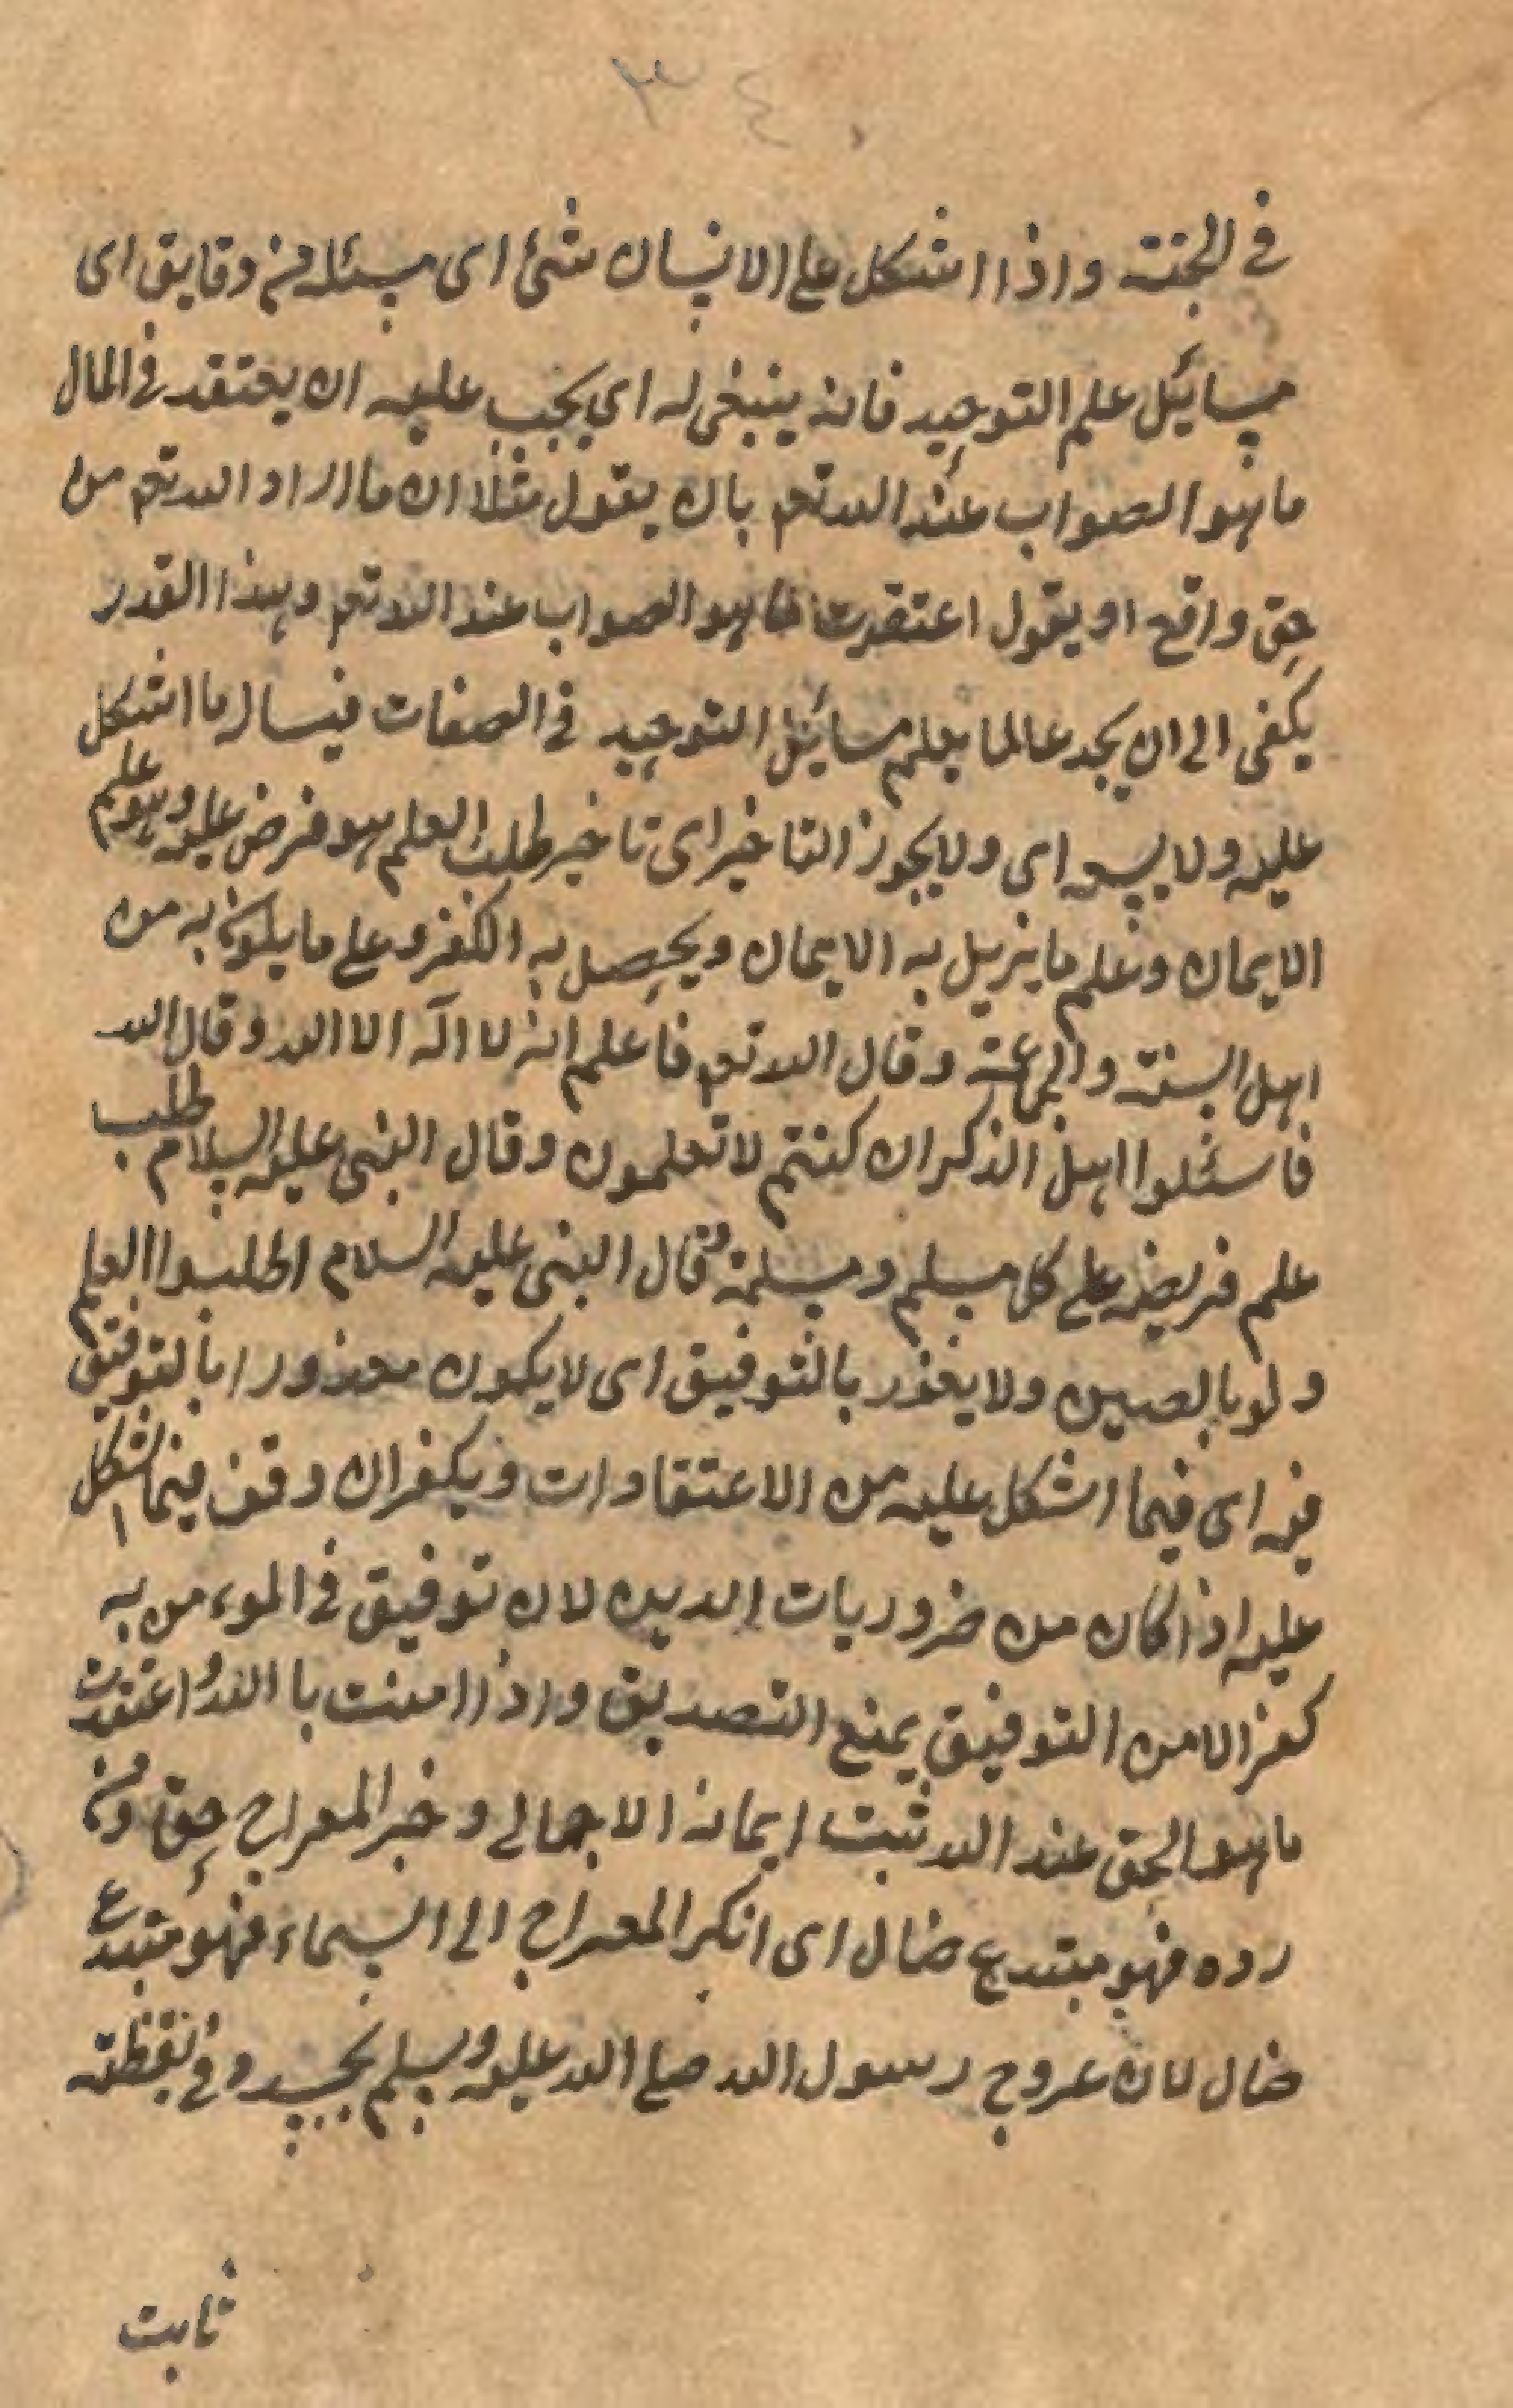 ٣٤٠
في الجنة واذا اشكل على الانسان شئ اى مسئلة من دقايق اى
مسائيل علم التوحيد فانه ينبغى له اي يجب عليه ان يعتقد في المال
ما هو الصواب عند الله تعم بان يقول مثلا ان ما اراد الله تعم من
حق واقع او يقول اعتقدت ما هو الصواب عند الله تعم وهذا القدر
يكفى الى ان يجد عالما يعلم مسائيل التوحيد في الصفات فيساله ما اشكل
عليه ولا يسعه اى ولا يجوز التاخير اى تاخير طلب العلم هو فرض عليه وهو علم
الايمان وعلم ما يزيل به الايمان ويحصل به الكفر وعلم ما يكون به من
اهل السنة والجماعة وقال الله تعم فاعلم انه لا اله الا الله وقال الله
فاسئلوا اهل الذكر ان كنتم لا تعلمون وقال النبى عليه السلام طلب
علم فريضة على كل مسلم ومسلمة وقال النبى عليه السلام اطلبوا العلم
ولو بالصين ولا يعذر بالتوفيق اى لا يكون معذورا بالتوفيق
فيه اى فيما اشكل عليه من الاعتقادات ويكفر ان وقف فيما اشكل
عليه اذا كان من ضروريات الدين لان توفيق في الموءمن به
كفر الامن التوفيق يمنع التصديق واذا امنت با الله واعتقدت
ما هو الحق عند الله ثبت ايمانه الاجمالى وخبر المعراج حق ومن
رده فهو مبتدع ضال اى انكر المعراج الى السماء فهو مبتدع
ضال لان عروج رسول الله صلى الله عليه وسلم بجسده وفي يقظته
ثابت